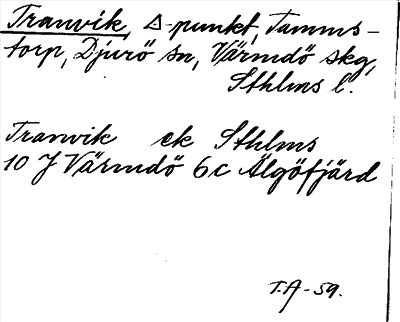 Tranvik, △-punkt, Tamms-
torp, Djurö sn, Värmdö skg,
Sthlms l.
Tranvik ek Sthlms
10 J Värmdö 6c Älgöfjärd
T.A-59.